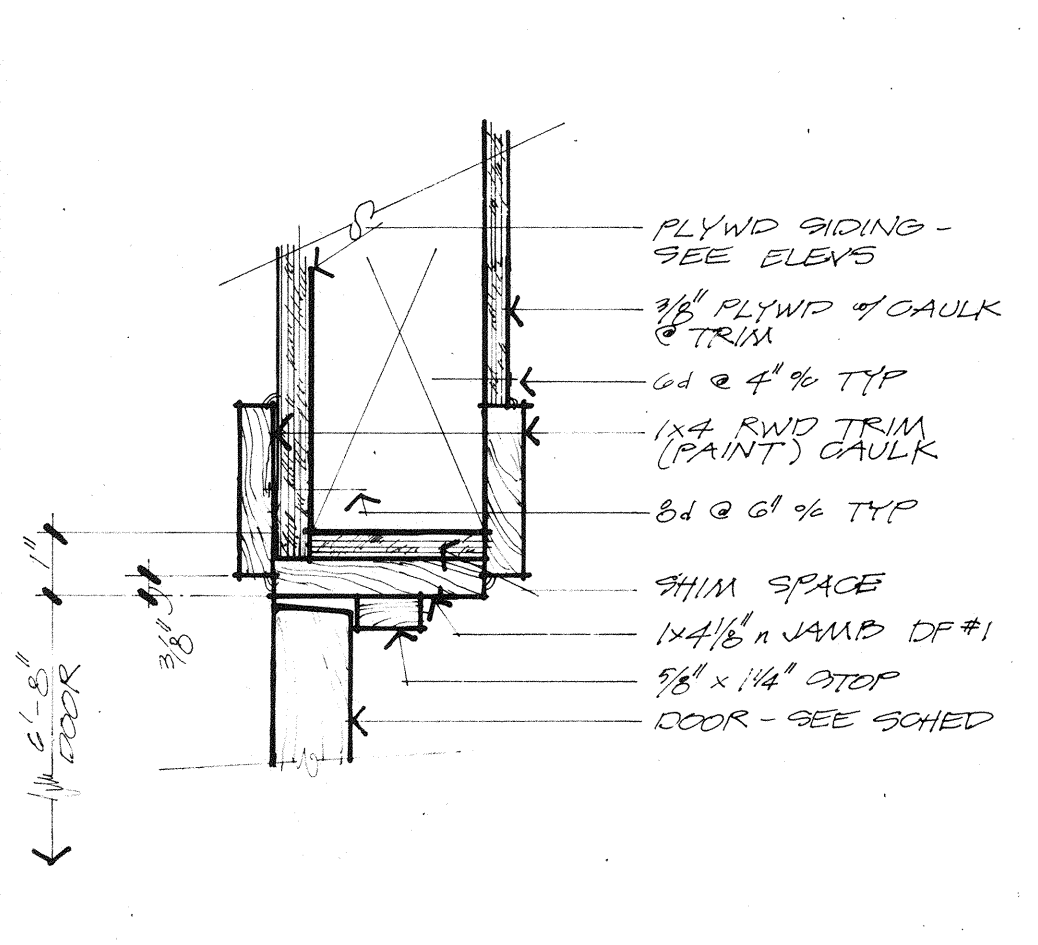 PLYWD SIDING -
SEE ELEVS
3/8" PLYWD w/ CAULK
@ TRIM
6d @ 4" o/c TYP
1x4 RWD TRIM
(PAINT) CAULK
8d @ 6" o/c TYP
SHIM SPACE
1x4 1/8" n JAMB DF #1
5/8" x 1 1/4" STOP
DOOR - SEE SCHED
1"
3/8"
6'-8"
DOOR